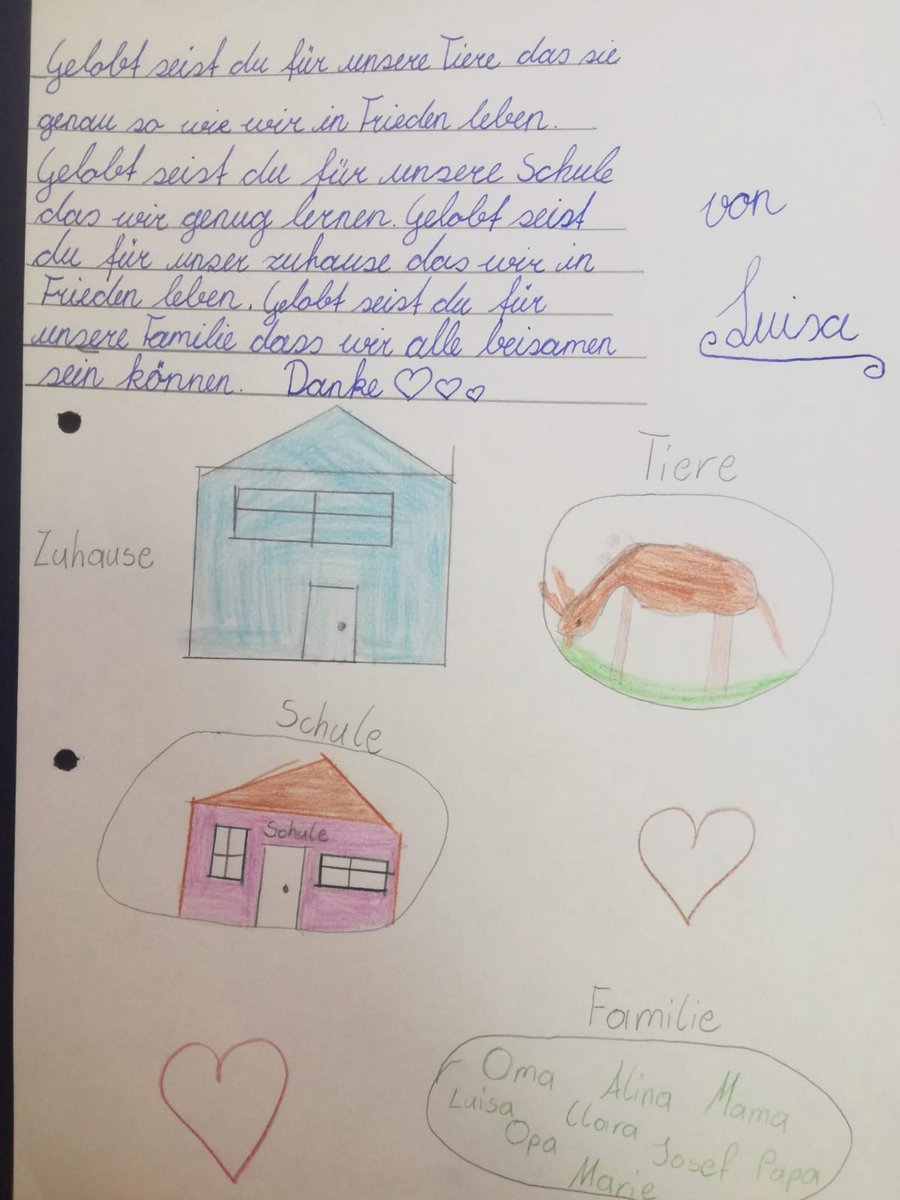 Gelobt seist du für unsere Tiere das sie
genau so wie wir in Frieden leben.
Gelobt seist du für unsere Schule
das wir genug lernen. Gelobt seist
du für unser zuhause das wir in
Frieden leben. Gelobt seist du für
unsere Familie dass wir alle beisamen
sein können. Danke ♡♡♡
von
Luisa
Zuhause
Tiere
Schule
Schule
Familie
Oma Alina Mama
Luisa Clara Josef Papa
Opa Marie